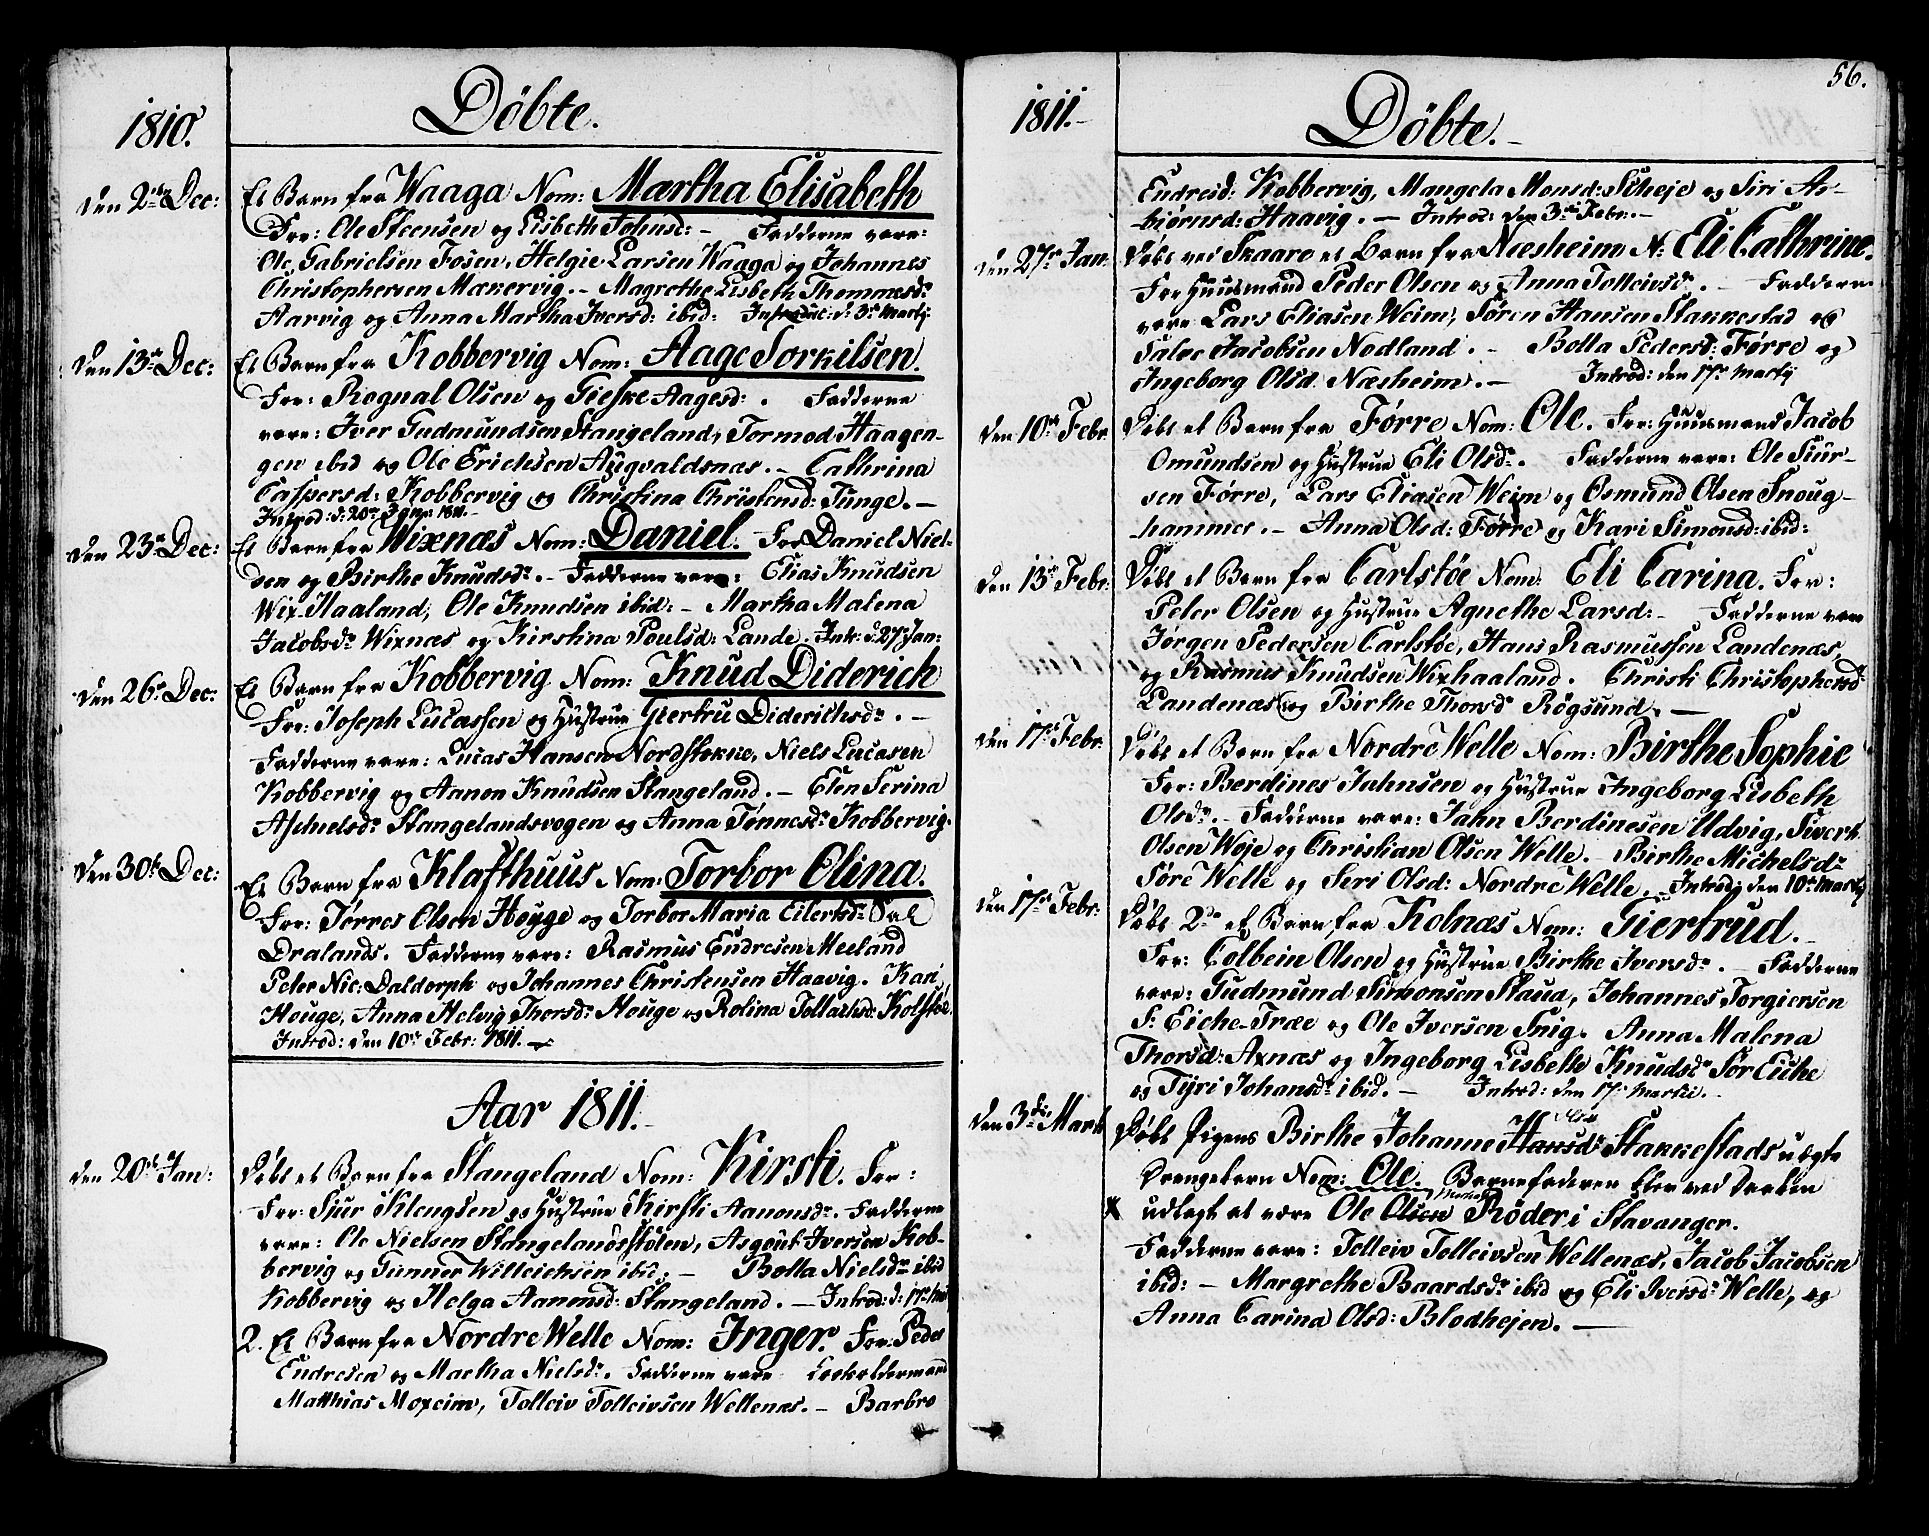 1810.
Döbte.
Den 2den Dec:
Et Barn fra Waaga Nom: Martha Elisabeth
For: Ole Steensen og Lisbeth Johnsd: – Fadderne vare:
Ole Gabrielsen Fosen, Helgie Larsen Waaga og Johannes
Christophersen Mækervig. – Magrethe Lisbeth Thommesdr
Aarvig og Anna Martha Iversd: ibid: Introduc: d: 3die Martij
Den 13de Dec:
Et Barn fra Kobbervig Nom: Aage Torkilsen.
For: Rognal Olsen og Gieske Aagesd: . Fadderne
vare: Iver Gudmundsen Stangeland, Tormod Haagen-
gen ibid og Ole Erichsen Augvaldsnæs. – Cathrina
Caspersd: Kobbervig og Christina Christensd: Tunge. –
Introd: d: 20de Janr: 1811. –
Den 23de Dec:
Et Barn fra Wixnæs Nom: Daniel. For Daniel Niel-
sen og Birthe Knudsdr. – Fadderne vare: Elias Knudsen
Wix-Haaland, Ole Knudsen ibid: – Martha Malena
Jacobsdr Wixnæs og Kirstina Poulsd: Lande. Intr: d. 27de Jan:
Den 26de Dec:
Et Barn fra Kobbervig Nom: Knud Diderich
For: Joseph Lucassen og Hustrue Giertru Diderichsdr. –
Fadderne vare: Lucas Hansen Nordstokke, Niels Lucasen
Kobbervig og Aanon Knudsen Stangeland. – Elen Serina
Aschelsdr Stangelandsvogen og Anna Tønnesdr Kobbervig.
Den 30te Dec:
Et Barn fra Klafthuus Nom: Torbor Elina.
For: Tørres Olsen Høyge og Torbor Maria Eilertsdr Sal
Dralands. Fadderne vare: Rasmus Endresen Meeland
Peter Nic: Daldorph og Johannes Christensen Haavig. Kari
Houge, Anna Helvig Thorsdr Houge og Rolina Tollachsd: Kolstöe.
Introd: den 10de Febr: 1811. –
Aar 1811. –
den 20de Jan:
Döbt et Barn fra Stangeland Nom: Kirsti. For:
For: Sjur Klengsen og Hustrue Kirsti Aanonsdr. Fadderne
vare: Ole Nielsen Stangelandsstølen, Asgout Iversen Kob-
bervig og Gunner Willeichsen ibid. – Bolla Nielsdr ibid
Kobbervig og Helga Aanonsd: Stangeland. – Introd: d: 17de Mar
2. Et Barn fra Nordre Welle Nom: Inger. For: Peder
Endresen og Martha Nielsdr. Fadderne vare Leeholdermand
Matthias Moxeim, Tolleiv Tolleivsen Wellenæs. – Barbro
56.
1811. –
Döbte. –
Endresd: Kobbervig, Mangela Monsd: Scheje og Siri As-
biörnsd: Haavig. – Introd: den 3die Febr. –
den 27de Jan:
Döbt ved Skaare et Barn fra Næsheim N: Eli Cathrine.
For Huusmand Peder Olsen og Anna Tolleivsdr. – Fadderne
vare Lars Eliasen Weim, Søren Hansen Stakkestad og
Salve Jacobsen Nedland. – Bolla Pedersd: Førre og
Ingeborg Olsd: Næsheim. – Introd: den 17de Martij
den 10de Febr
Döbt et Barn fra Førre Nom: Ole. For: Huusmand Jacob
Omundsen og Hustrue Eli Olsdr. Fadderne vare: Ole Siur-
sen Førre, Lars Eliasen Weim og Osmund Olsen Snoug-
hammer. – Anna Olsd: Førre og Kari Simonsd: ibid:
den 15de Febr:
Döbt et Barn fra Carlstöe Nom: Eli Carina. For:
Peter Olsen og Hustrue Agnethe Larsd: – Fadderne vare
Jørgen Pedersen Carlstöe, Hans Rasmussen Landenæs,
og Rasmus Knudsen Wixhaaland. Christi Christophersdr
Landenæs og Birthe Thorsdr Røgsund. –
den 17de Febr:
Döbt et Barn fra Nordre Welle Nom: Birthe Sophie
For: Berdines Jahnsen og Hustrue Ingeborg Lisbeth
Olsdr. – Fadderne vare: Jahn Berdinesen Udvig, Siverh
Olsen Woje og Christian Olsen Welle. – Birthe Michelsdr
Søre Welle og Seri Olsd: Nordre Welle. – Introd: den 10de Martij
den 17de Febr:
Döbt 2do et Barn fra Kolnæs Nom: Giertrud. –
For: Colbein Olsen og Hustrue Birthe Iversdr. – Fadderne
vare: Gudmund Simonsen Staua, Johannes Torgiersen
S: Eiche-Træe og Ole Iversen Snig. Anna Malena
Thorsd: Axnæs og Ingeborg Lisbette Knudsdr Sør Eiche
og Tyri Johansdr ibid. – Introd: den 17de Martii. –
den 3die Marti
Döbt Pigens Birthe Johanne Hansdr Stakkestads uægte
Drengebarn Nom: Ole. Barnefaderen blev ved Daaben
X udlagt at være Ole Olsen Røder i Stavanger.
Fadderne vare: Tolleiv Tolleivsen Wellenæs, Jacob Jacobsen
ibid: – Margrethe Baardsdr ibid og Eli Iversdr Welle, og
Anna Carina Olsd: Blodhejen. –